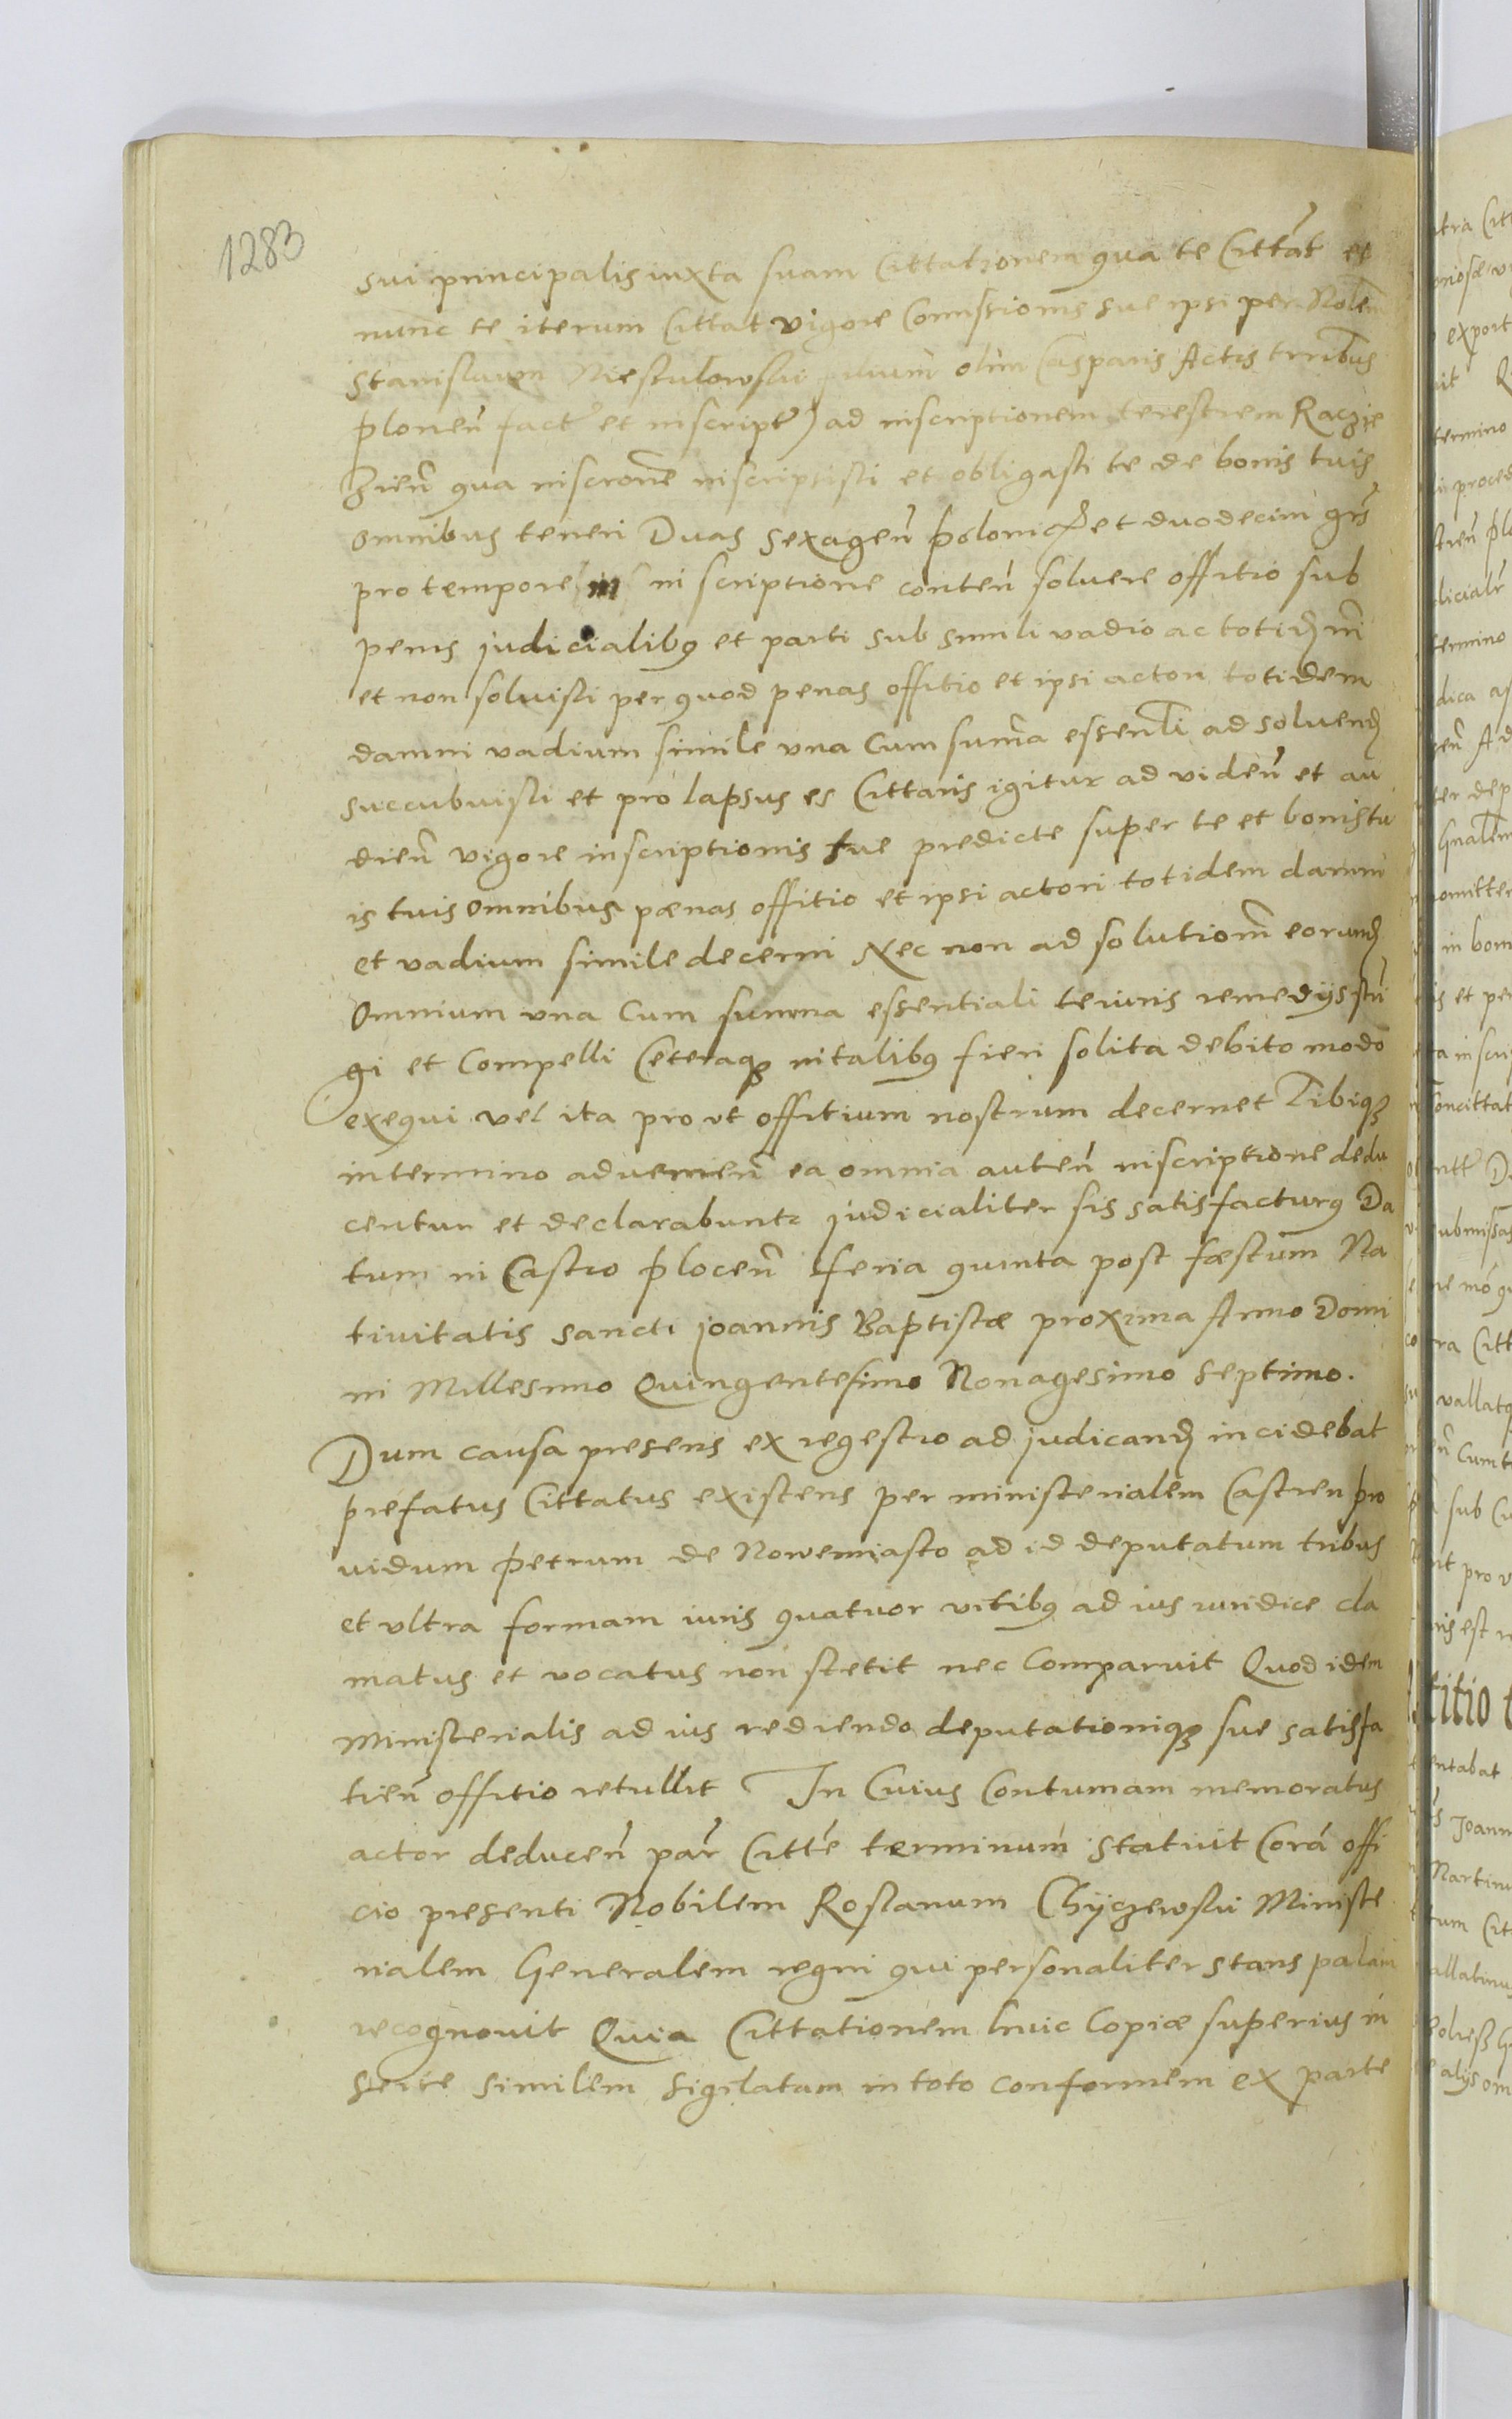 1283
sui principalis iuxta suam Cittationem qua te Cittat et
nunc te iterum Cittat vigore Comissionis sue ipsi per Nolem
Stanislaum Niesulowski filium olim Casparis Actis trribus
plonen̄ fact et inscript) ad inscriptionem terestrem Raczię
zien̄ qua inscrone inscripsisti et obligasti te de bonis tuis
omnibus teneri Duas sexagen̄ polonic et duodecim grs
pro tempore in scriptione conten̄ soluere offitio sub
penis judicialibꝯ et parti sub simili vadio ac totid
et non soluisti per quod penas offitio et ipsi actori totidem
damni vadium simile vna Cum suma essentli ad soluend
succubuisti et pro lapsus es Cittaris igitur ad viden̄ et au
dien̄ vigore inscriptionis sue predicte super te et bonis tu
is tuis omnibus pœnas offitio et ipsi actori totidem damni
et vadium simile decerni Nec non ad solutionm eorund
omnium vna Cum summa essentiali te iuris remedijs stri
gi et Compelli Ceteraqꝫ in talibꝯ fieri solita debito modo
exequi vel ita pro vt offitium nostrum decernet Tibiqꝫ
in termino advenien̄ ea omnia auten̄ inscriptione dedu
centur et declarabuntr judicialiter sis satisfacturꝯ Da
tum in Castro plocen̄ feria quinta post fæstum Na
tivitatis sancti joannis Baptistæ proxima Anno Domi
ni Millesimo Quingentesimo Nonagesimo septimo.
Dum causa presens ex regestro ad judicand incidebat
prefatus Cittatus existens per ministerialem Castren pro
vidum petrum de Nowemiasto ad id deputatum tribus
et vltra formam iuris quatuor vitibꝯ ad ius iuridice cla
matus et vocatus non stetit nec Comparuit Quod idem
Ministerialis ad ius rediendo deputationiqꝫ sue satisfa
tien̄ offitio retullit In Cuius Contumam memoratus
actor deducen̄ par Citte terminum statuit Corā offi
cio presenti Nobilem Roslanum Chyczewski Ministe
rialem Generalem regni qui personaliter stans palam
recognouit Quia Cittationem huic Copiæ superius in
serte similem sigilatam in toto conformem ex parte